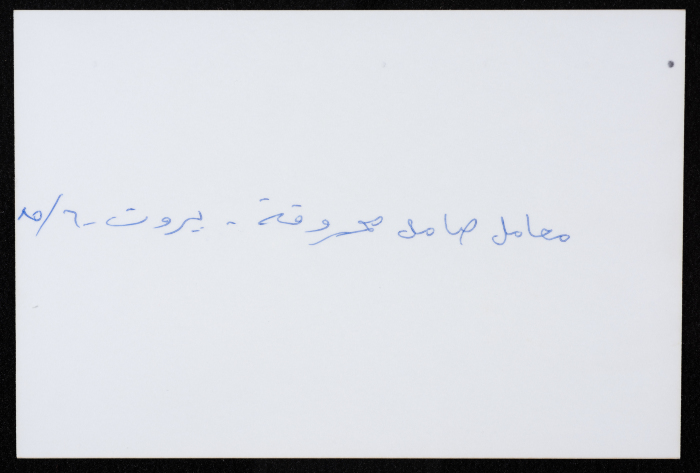 معامل صامل محروقة - بيروت - ٦/٨٥